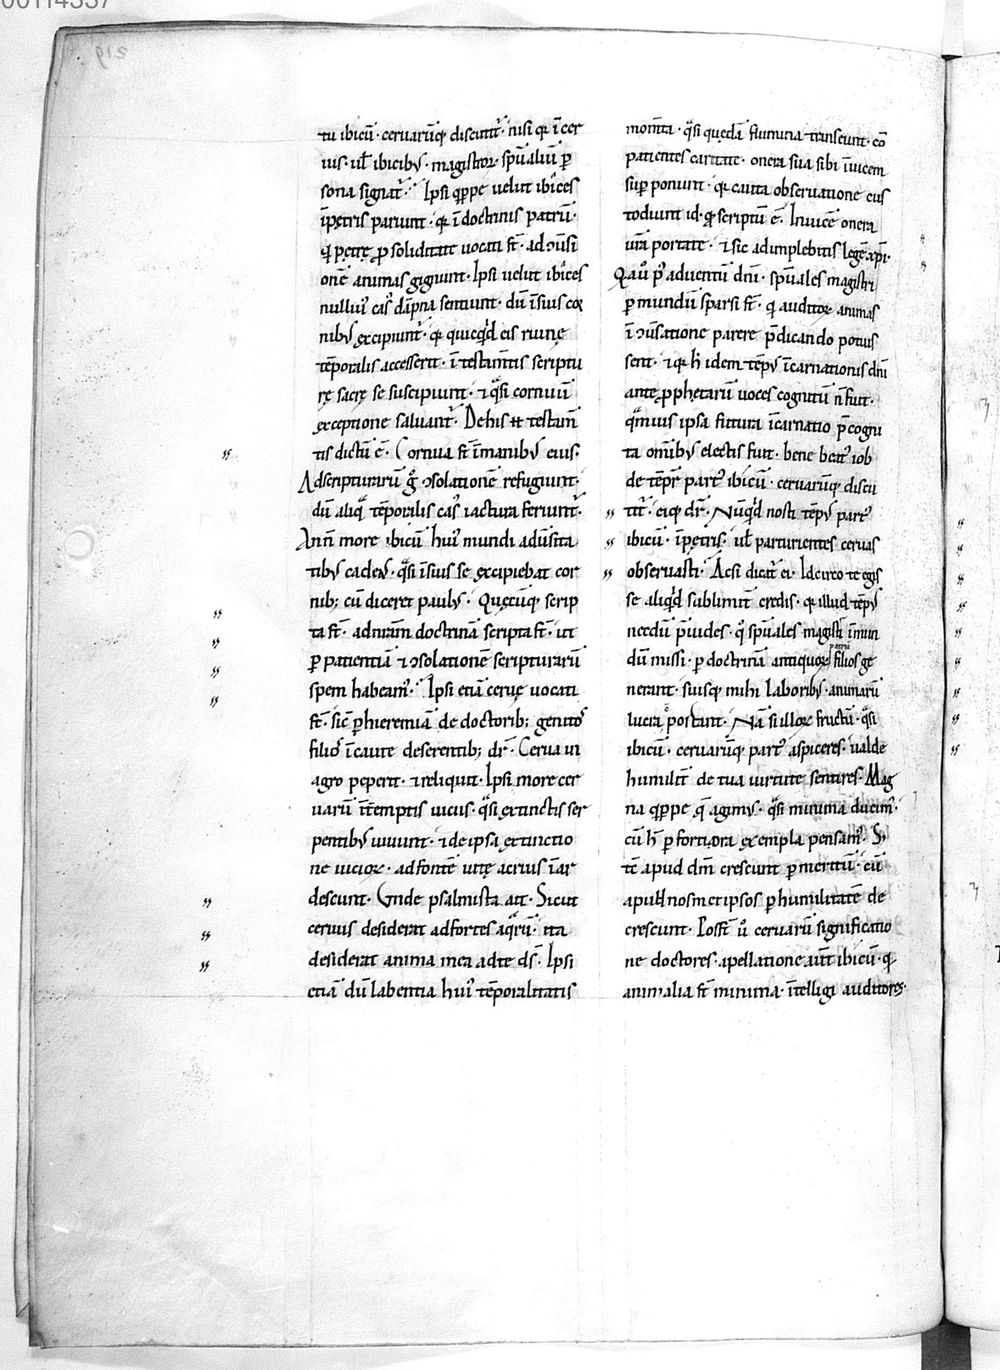 00114337
219
tu ibicū· ceruarūq; discutit᷑· nisi q̇ ī cer
uis· ul̄ ibicibꝰ· magistroꝝ· sp̄ualiū ꝑ
sona signat᷑· Ipsi q̇ppe uelut ibices
īpętris pariunt· q̇ ī doctrinis patrū·
q̇ pętrę ꝓ soliditate uocati st̄· ad ꝯuersi
onē animas gignunt· Ipsi uelut ibices
nulliꝰ casꝰ dāpna sentiunt· dū īsuis cor
nibꝰ excipiunt᷑· q̇ quicq̇d eis ruinę
tēporalis accesserit· ī testam̄tis scriptu
rę sacrę se suscipiunt· ⁊ q̇si cornuū
exceptione saluant᷑· De his ⁊ testam̄
tis dictū ē· Cornua st̄ ī manibꝰ eius·
Ad scripturarū g̊ ꝯsolationē refugiunt·
dū aliq̇ tēporalis casꝰ iactura feriunt᷑·
An̄ n̄ more ibicū huiꝰ mundi aduersita
tibꝰ cadens· q̇si īsuis se excipiebat cor
nib;· cū diceret paulꝰ· Quęcūq; scrip
ta st̄· ad nr̄am doctrinā scripta st̄· ut
ꝑ patientiā ⁊ ꝯsolationē scripturarū
spem habeamꝰ· Ipsi etiā ceruę uocati
st̄· sic̄ ꝑ hieremiā de doctorib; genitos
filios īcaute deserentib; dr̄· Cerua in
agro peperit· ⁊ reliquit· Ipsi more cer
uarū īt̄emptis uiciis· q̇si extinctis ser
pentibꝰ uiuunt· ⁊ de ipsa extinctio
ne uicioꝝ· ad fontē uitę acrius īar
descunt· Unde psalmista ait· Sicut
ceruus desiderat ad fontes aq̇rū· ita
desiderat anima mea ad te ds̄· Ipsi
etiā dū labentia huiꝰ tēporalitatis
mom̄ta· q̇si quędā flumina transeunt· cō
patientes caritate· onera sua sibi īuicem
suꝑponunt· q̇ cauta obseruatione cus
todiunt id· qđ scriptū ē· Inuicē onera
ur̄a portate· ⁊ sic adimplebitis legē xp̄i·
Q̇ a u̇ p̄ aduentū dn̄i· sp̄uales magistri
ꝑ mundū sparsi st̄· q̇ auditoꝝ animas
ī ꝯuersatione parere p̄dicando potuis
sent· ⁊ q̇ h̄ idem tēpꝰ īcarnationis dn̄i
ante ꝓphetarū uoces cognitū n̄ fuit·
q̇muis ipsa futura īcarnatio p̄cogni
ta om̄ibꝰ electis fuit· bene beatꝰ iob
de tēpr̄ partꝰ ibicū· ceruarūq; discu
tit᷑· eiq; dr̄· Nūq̇d nosti tēpꝰ partꝰ
ibicū· īpętris· ul̄ parturientes ceruas
obseruasti· Ac si dicat᷑ ei· Idcirco te egis
se aliq̇d sublimit᷑ credis· q̇ illud tēpꝰ
necdū p̄uides· q̊ sp̄uales magistri ī mun
dū missi· ꝑ doctrinā antiquoꝝ patrū filios ge
nerant· suisq; mihi laboribꝰ· animarū
lucra portant· Nā si illoꝝ fructū· q̇si
ibicū· ceruarūq; partꝰ aspiceres· ualde
humilit᷑ de tua uirtute sentires· Mag
na q̇ppe q̄ agimꝰ· q̇si minima ducimꝰ·
cū h̄ ꝑ fortiora exempla pensamꝰ· S;
tē apud dn̄m crescunt ꝑ meritū· cū
apud nosmetipsos ꝑ humilitatē de
crescunt· Posst̄ u̇ ceruarū significatio
ne doctores· apellatione aut̄ ibicū· q̇
animalia st̄ minima· ītelligi auditores·